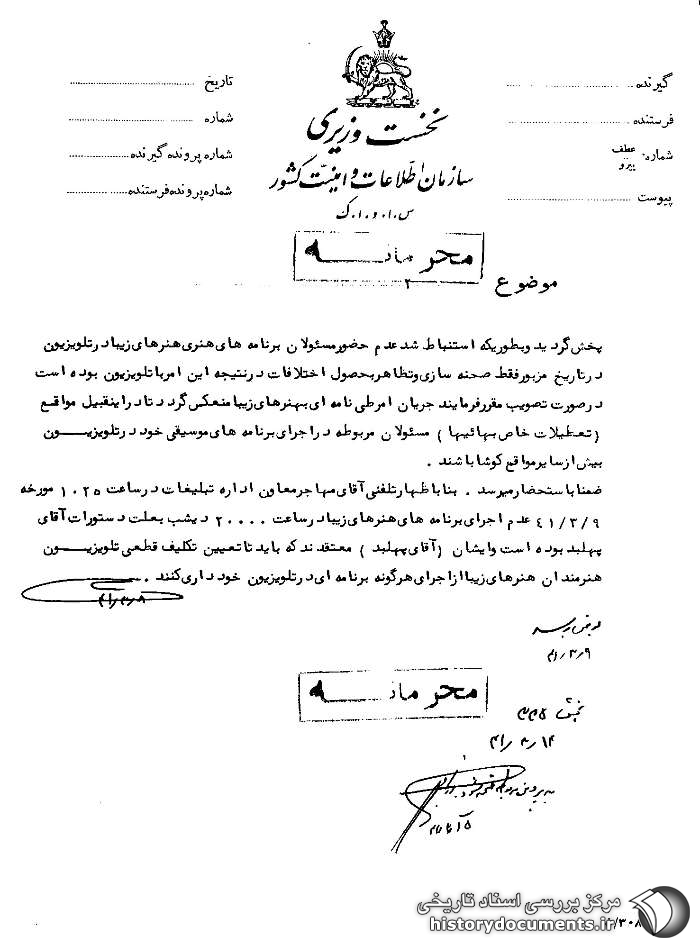 گیرنده
فرستنده
شماره عطف
پیرو
پیوست
نخست وزیری
سازمان اطلاعات و امنیت کشور
س.ا.و.ا.ک
تاریخ
شماره
شماره پرونده گیرنده
شماره پرونده فرستنده
محرمانه
۲
موضوع
پخش گردید و بطوریکه استنباط شد عدم حضور مسئولان برنامه های هنری هنرهای زیبا در تلویزیون
در تاریخ مزبور فقط صحنه سازی و تظاهر بحصول اختلافات در نتیجه این امر با تلویزیون بوده است
در صورت تصویب مقرر فرمایند جریان امر طی نامه ای بهنرهای زیبا منعکس گردد تا در اینقبیل مواقع
( تعطیلات خاص بهائیها ) مسئولان مربوطه در اجرای برنامه های موسیقی خود در تلویزیـــون
بیش از سایر مواقع کوشا باشند .
ضمنا باستحضار میرسد . بنا باظهار تلفنی آقای مهاجر معاون اداره تبلیغات در ساعت ۱۰۲۵ مورخه
۴۱/۳/۹ عدم اجرای برنامه های هنرهای زیبا در ساعت ۲۰۰۰۰ دیشب بعلت دستورات آقای
پهلبد بوده است و ایشان (آقای پهلبد ) معتقدند که باید تا تعیین تکلیف قطعی تلویزیـــون
هنرمندان هنرهای زیبا از اجرای هرگونه برنامه ای در تلویزیون خودداری کنند .
۴۱/۳/۹
محرمانه
بخش
مرکز بررسی اسناد تاریخی
historydocuments.ir